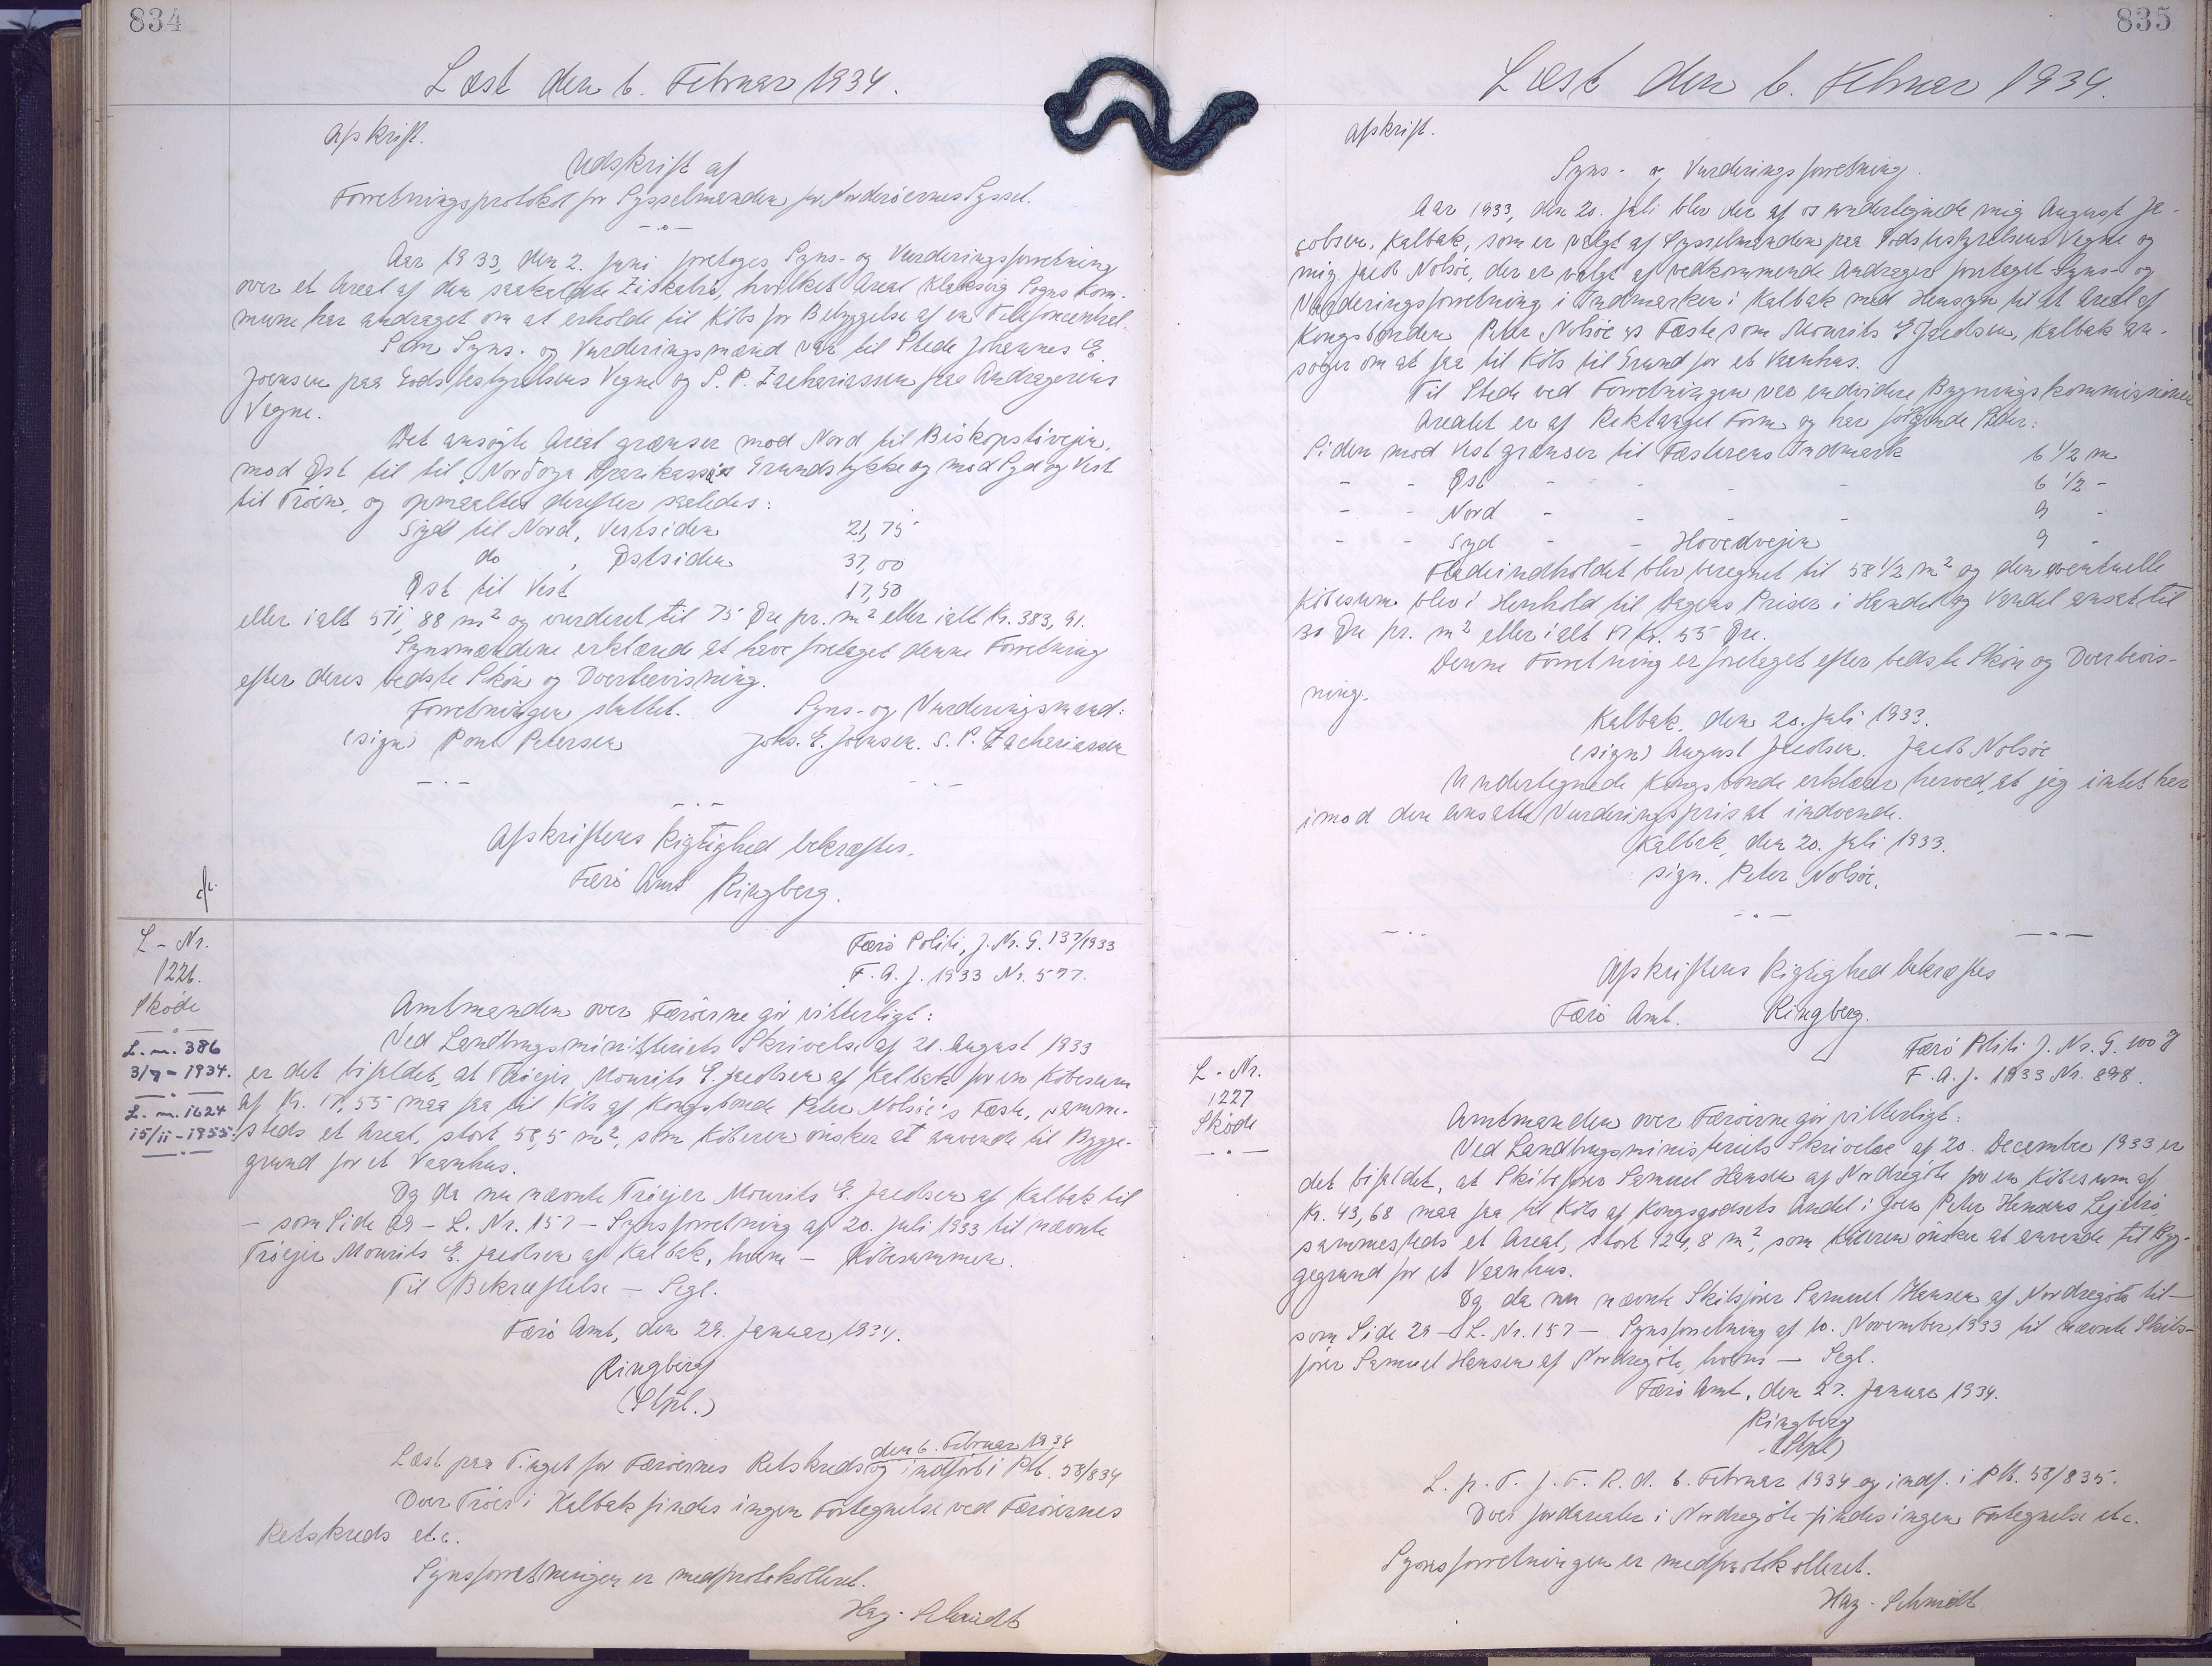 834
Læst den 6. Februar 1934.
Afskrift.
Udskrift af
Forretningsprotokol for Sysselmanden for Norderöernes Syssel.
Aar 1933, den 2. Juni foretoges Syns- og Vurderingsforretning
over et Areal af den saakaldte Ziskatrö, hvilket Areal Klaksvig Sogns Kom-
mune har andraget om at erholde til Köbs for Bebyggelse af en Telefoncentral.
Som Syns- og Vurderingsmænd var til Stede Johannes E.
Joensen paa Godsbestyrelsens Vegne og S. P. Zachariassen paa Andragerens
Vegne.
Det ansögte Areal grænser mod Nord til Biskopstövejen,
mod Øst til til Norðoya Sparikassies Grundstykke og mod Syd og Vest
til Tröen, og opmaaltes derefter saaledes:
Syd til Nord, Vestsiden 21,75
do , Østsiden 37,00
Øst til Vest 17,50
eller ialt 511,88 m² og vurderet til 75 Øre pr. m² eller ialt Kr. 383,91.
Synsmændene erklærede at have foretaget denne Forretning
efter deres bedste Skön og Overbevisning.
Forretningen sluttet. Syns- og Vurderingsmænd:
(sign) Poul Petersen Johs. E. Joensen. S. P. Zachariassen
Afskriftens Rigtighed bekræftes.
Færö Amt Ringberg.
L - Nr.
1226.
Sköde
L. nr. 386
3/7 - 1934.
L. nr. 1624
15/11 - 1955.
Færö Politi, J. Nr. G. 137/1933
F. A. J. 1933 Nr. 577.
Amtmanden over Færöerne gör vitterligt:
Ved Landbrugsministeriets Skrivelse af 21. August 1933
er det bifaldet, at Tröejer Mourits E. Jacobsen af Kalbak for en Köbesum
af Kr. 17,55 maa faa til Köbs af Kongsbonde Peter Nolsöe's Fæste, samme-
steds et Areal, stort 58,5 m², som Köberen önsker at anvende til Bygge-
grund for et Vaanhus.
Og da nu nævnte Tröejer Mourits E. Jacobsen af Kalbak til
- som Side 29 - L. Nr. 157 - Synsforretning af 20. Juli 1933 til nævnte
Tröejer Mourits E. Jacobsen af Kalbak, hvem - Köbesummen.
Til Bekræftelse - Segl.
Færö Amt, den 29. Januar 1934.
Ringberg
(Stpl.)
Læst paa Tinget for Færöernes Retskreds den 6. Februar 1934 og indfört i Ptb. 58/834
Over Tröer i Kalbak findes ingen Fortegnelse ved Færöernes
Retskreds etc.
Synsforretningen er medprotokolleret.
Hag - Schmidt
835
Læst den 6. Februar 1934.
Afskrift.
Syns- og Vurderingsforretning.
Aar 1933, den 20. Juli blev der af os undertegnede mig August Ja-
cobsen, Kalbak, som er valgt af Sysselmanden paa Godsbestyrelsens Vegne og
mig Jacob Nolsöe, der er valgt af vedkommende Andrager foretaget Syns- og
Vurderingsforretning i Indmarken i Kalbak med Hensyn til et Areal af
Kongsbonden Peter Nolsöe's Fæste som Mourits E. Jacobsen, Kalbak an-
söger om at faa til Köbs til Grund for et Vaanhus.
Til Stede ved Forretningen var endvidere Bygningskommissionen
Arealet er af Rektangel Form og har fölgende Sider:
Siden mod Vest grænser til Fæsterens Indmark 6 1/2 m
- - Øst - - - - 6 1/2 -
- - Nord - - - 9 -
- - Syd - - Hovedvejen 9 -
Fladeindholdet blev beregnet til 58 1/2 m² og den eventuelle
Köbesum blev i Henhold til Dagens Priser i Handel og Vandel ansat til
30 Øre pr. m² eller ialt 17 Kr. 55 Øre.
Denne Forretning er foretaget efter bedste Skön og Overbevis-
ning.
Kalbak, den 20. Juli 1933.
(sign) August Jacobsen. Jacob Nolsöe
Undertegnede Kongsbonde erklærer herved, at jeg intet har
imod den ansatte Vurderingspris at indvende.
Kalbak, den 20. Juli 1933.
sign. Peter Nolsöe.
Afskriftens Rigtighed bekræftes
Færö Amt. Ringberg.
L - Nr.
1227
Sköde
Færö Politi J. Nr. G.
F. A. J. 1933 Nr. 898.
Amtmanden over Færöerne gör vitterligt:
Ved Landbrugsministeriets Skrivelse af 20. December 1933 er
det bifaldet, at Skibsförer Samuel Hansen af Nordregöte for en Köbesum af
Kr. 43,68 maa faa til Köbs af Kongsgodsets Andel i Joen Peter Hansens Lejetrö
sammesteds et Areal, stort 124,8 m², som Köberen önsker at anvende til Byg-
gegrund for et Vaanhus.
Og da nu nævnte Skibsförer Samuel Hansen af Nordregöte til -
som Side 29 - L. Nr. 157 - Synsforretning af 10. November 1933 til nævnte Skibs-
förer Samuel Hansen af Nordregöte, hvem - Segl.
Færö Amt, den 27. Januar 1934.
Ringberg
(Stpl)
L. p. T. f. F. R. d. 6. Februar 1934 og indf. i Ptb. 58/835.
Over Jordarealer i Nordregöte findes ingen Fortegnelse etc.
Synsforretningen er medprotokolleret.
Hag - Schmidt